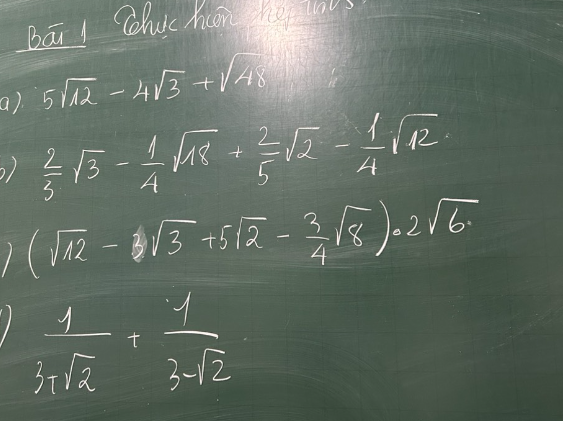 Bài 1 Thực hiện phép tính
a) 5√12 - 4√3 + √48
b) 2/3 √3 - 1/4 √18 + 2/5 √2 - 1/4 √12
) (√12 - 3√3 + 5√2 - 3/4 √8) . 2√6
) 1/(3+√2) + 1/(3-√2)